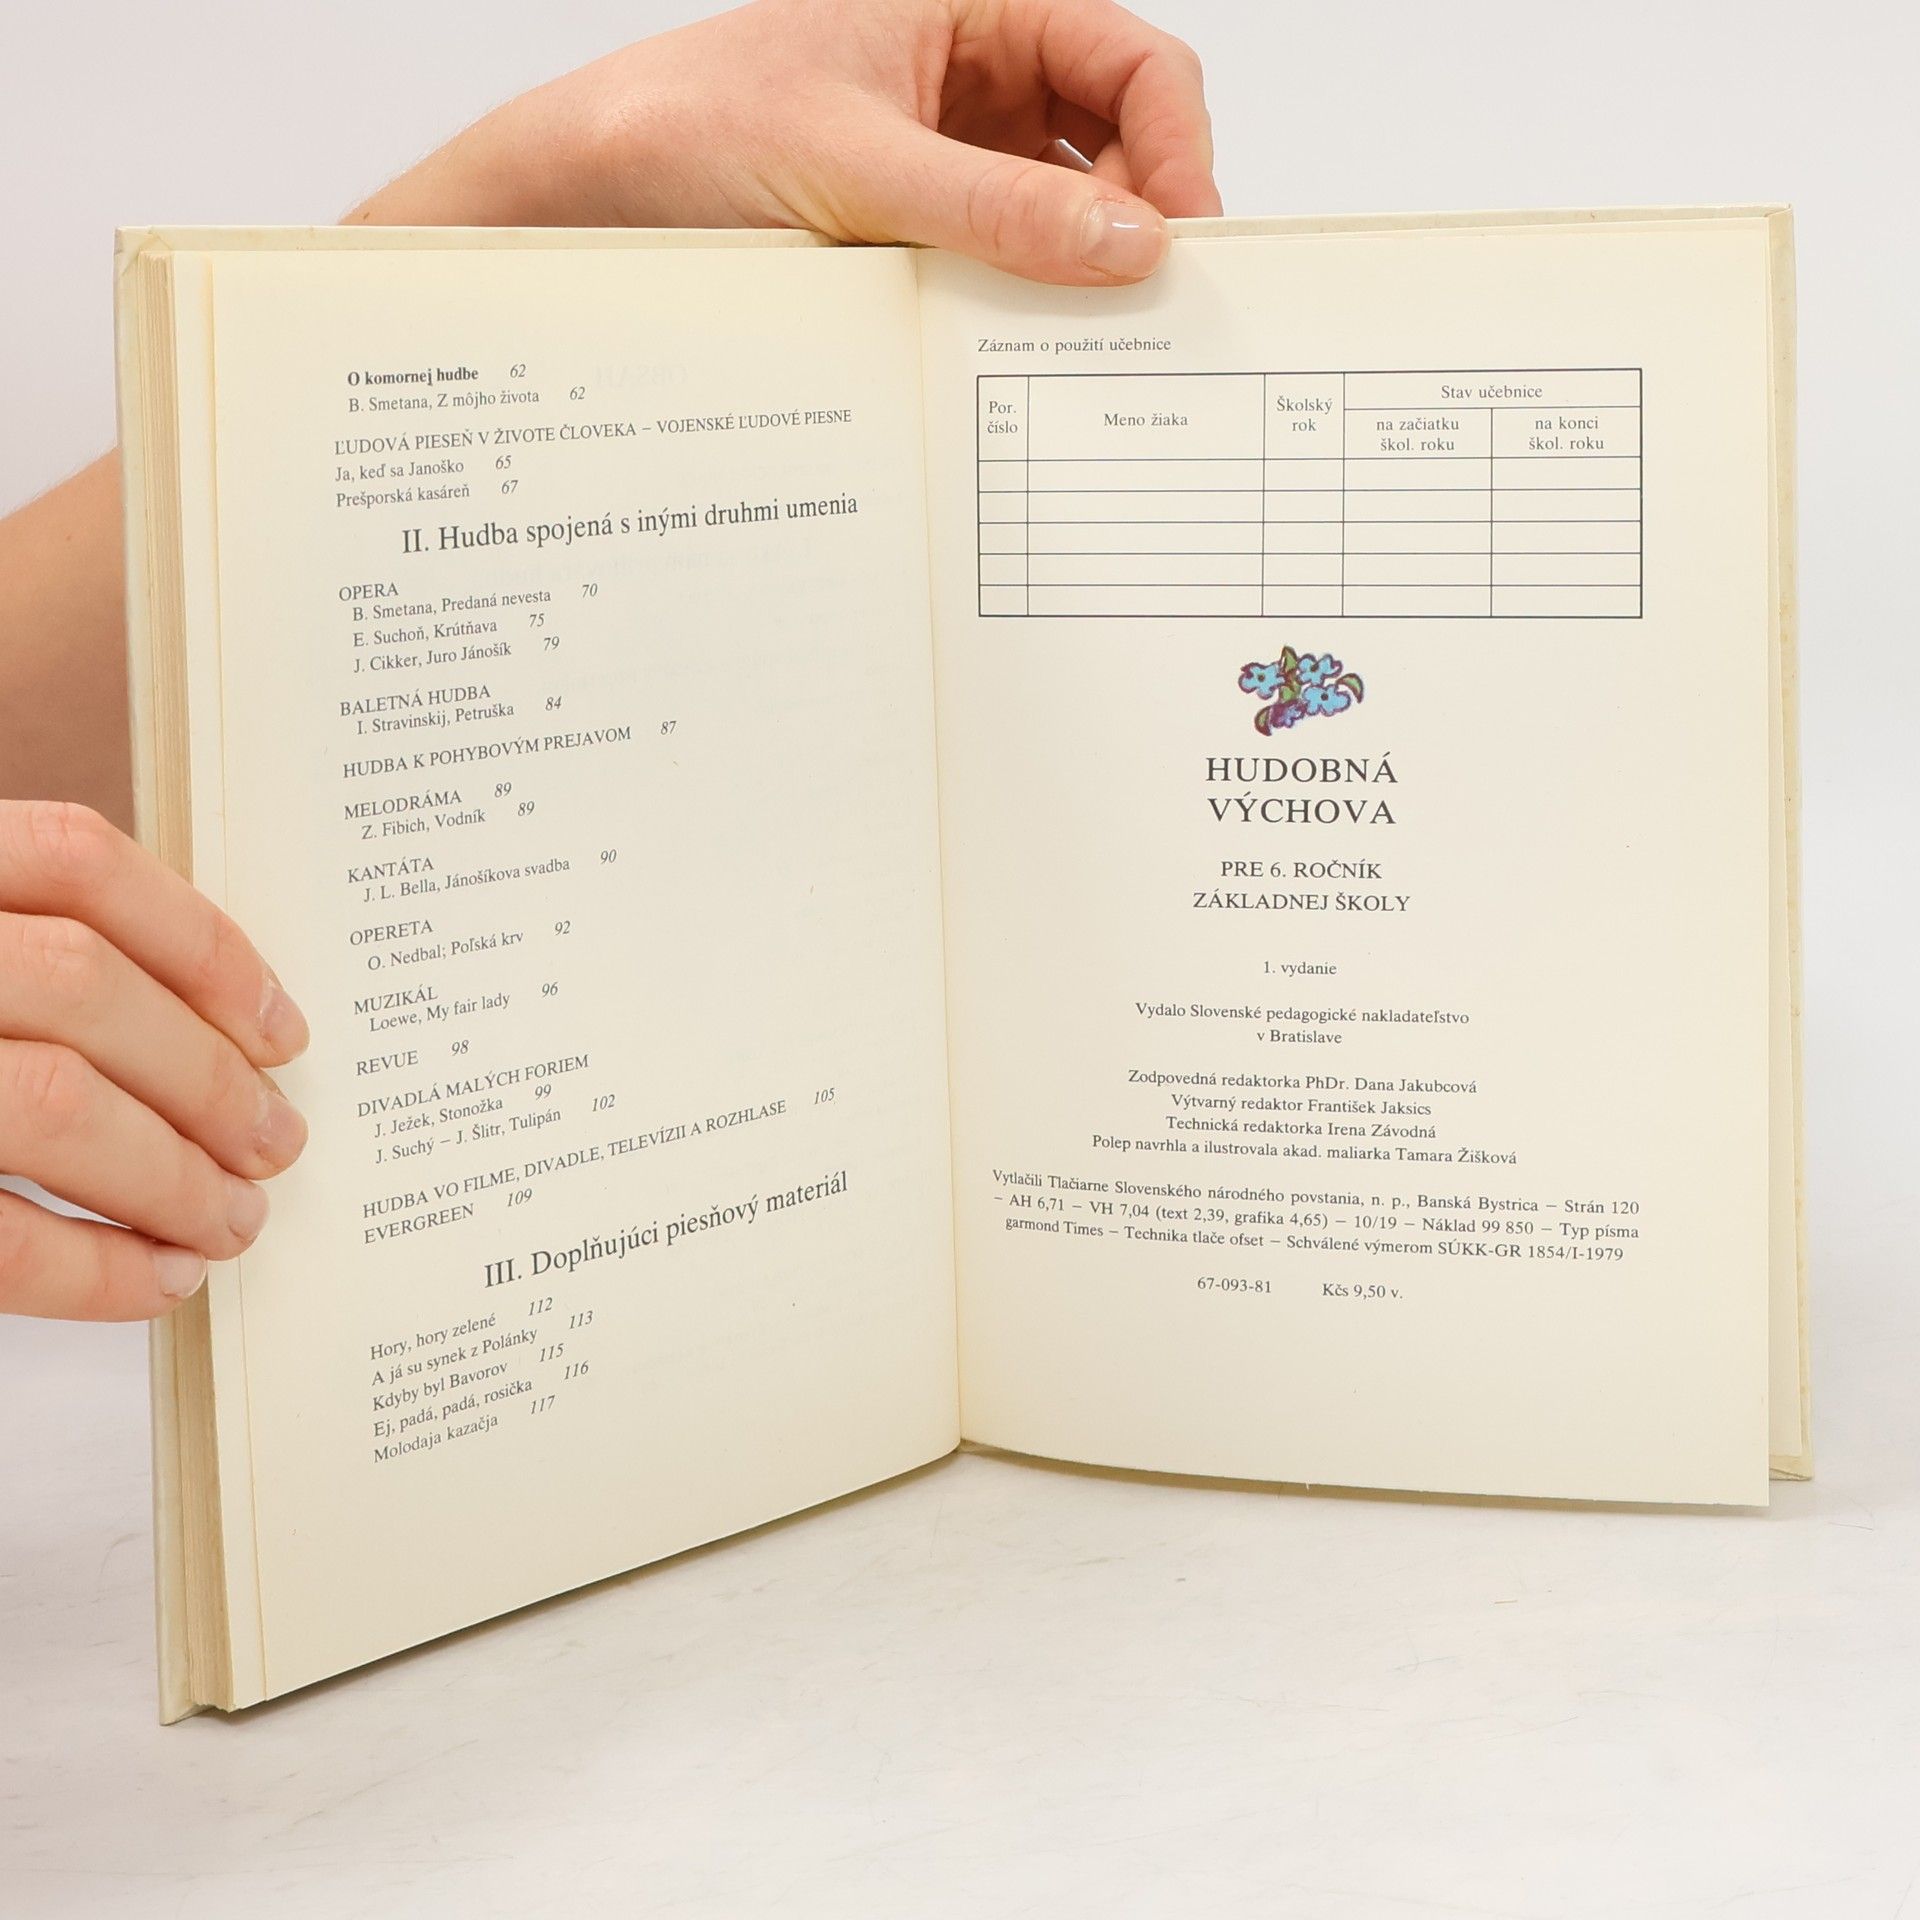 O komornej hudbe 62
B. Smetana, Z môjho života 62
ĽUDOVÁ PIESEŇ V ŽIVOTE ČLOVEKA – VOJENSKÉ ĽUDOVÉ PIESNE
Ja, keď sa Janoško 65
Prešporská kasáreň 67
II. Hudba spojená s inými druhmi umenia
OPERA
B. Smetana, Predaná nevesta 70
E. Suchoň, Krútňava 75
J. Cikker, Juro Jánošík 79
BALETNÁ HUDBA
I. Stravinskij, Petruška 84
HUDBA K POHYBOVÝM PREJAVOM 87
MELODRÁMA 89
Z. Fibich, Vodník 89
KANTÁTA
J. L. Bella, Jánošíkova svadba 90
OPERETA
O. Nedbal; Poľská krv 92
MUZIKÁL
Loewe, My fair lady 96
REVUE 98
DIVADLÁ MALÝCH FORIEM
J. Ježek, Stonožka 99
J. Suchý – J. Šlitr, Tulipán 102
HUDBA VO FILME, DIVADLE, TELEVÍZII A ROZHLASE 105
EVERGREEN 109
III. Doplňujúci piesňový materiál
Hory, hory zelené 112
A já su synek z Polánky 113
Kdyby byl Bavorov 115
Ej, padá, padá, rosička 116
Molodaja kazačja 117
Záznam o použití učebnice
Por. číslo Meno žiaka Školský rok Stav učebnice
na začiatku škol. roku na konci škol. roku
HUDOBNÁ
VÝCHOVA
PRE 6. ROČNÍK
ZÁKLADNEJ ŠKOLY
1. vydanie
Vydalo Slovenské pedagogické nakladateľstvo
v Bratislave
Zodpovedná redaktorka PhDr. Dana Jakubcová
Výtvarný redaktor František Jaksics
Technická redaktorka Irena Závodná
Polep navrhla a ilustrovala akad. maliarka Tamara Žišková
Vytlačili Tlačiarne Slovenského národného povstania, n. p., Banská Bystrica – Strán 120
– AH 6,71 – VH 7,04 (text 2,39, grafika 4,65) – 10/19 – Náklad 99 850 – Typ písma
garmond Times – Technika tlače ofset – Schválené výmerom SÚKK-GR 1854/I-1979
67-093-81 Kčs 9,50 v.